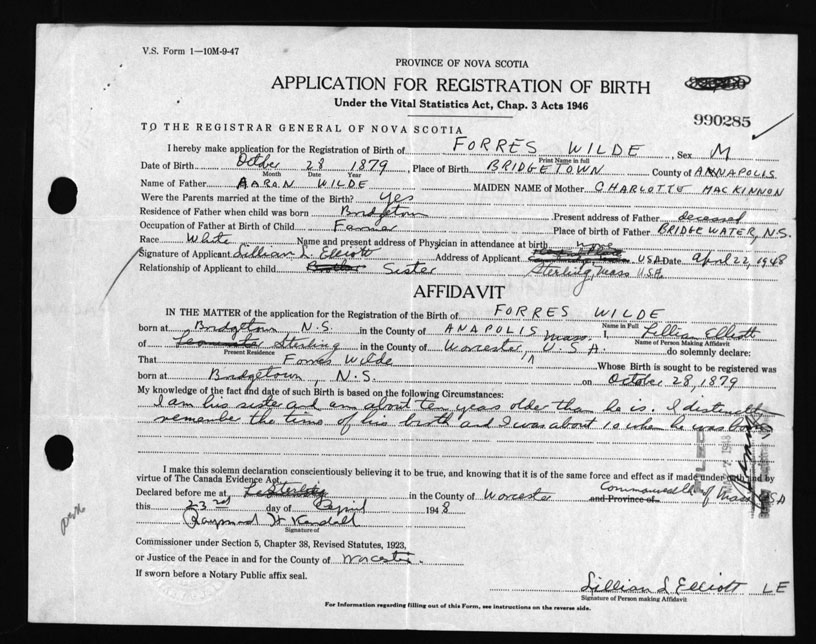 V.S. Form 1—10M-9-47
PROVINCE OF NOVA SCOTIA
APPLICATION FOR REGISTRATION OF BIRTH
Under the Vital Statistics Act, Chap. 3 Acts 1946
990285
TO THE REGISTRAR GENERAL OF NOVA SCOTIA
I hereby make application for the Registration of Birth of FORRES WILDE, Sex M
Print Name in full
Date of Birth October 28 1879, Place of Birth BRIDGETOWN County of ANNAPOLIS
Month Date Year
Name of Father AARON WILDE MAIDEN NAME of Mother CHARLOTTE MACKINNON
Were the Parents married at the time of Birth? Yes
Residence of Father when child was born Bridgetown Present address of Father deceased
Occupation of Father at Birth of Child Farmer Place of birth of Father BRIDGEWATER, N.S.
Race White Name and present address of Physician in attendance at birth none
Signature of Applicant Lillian L. Elliott Address of Applicant USA Date April 22, 1948
Relationship of Applicant to child Sister Sterling, Mass U.S.A.
AFFIDAVIT
IN THE MATTER of the application for the Registration of the Birth of FORRES WILDE
Name in Full
born at Bridgetown N.S. in the County of ANAPOLIS I, Lillian Elliott
Name of Person Making Affidavit
of Leominster Sterling in the County of Worcester, Mass. U.S.A. do solemnly declare:
Present Residence
That Forres Wilde Whose Birth is sought to be registered was
born at Bridgetown, N.S. on October 28, 1879
My knowledge of the fact and date of such Birth is based on the following Circumstances:
I am his sister and am about ten years older than he is. I distinctly
remember the time of his birth and I was about 10 when he was born
I make this solemn declaration conscientiously believing it to be true, and knowing that it is of the same force and effect as if made under oath and by
virtue of The Canada Evidence Act.
Declared before me at Sterling in the County of Worcester and Province of Commonwealth of Mass USA
this 23rd day of April 1948
Raymond H Kendall
Signature of
Commissioner under Section 5, Chapter 38, Revised Statutes, 1923,
or Justice of the Peace in and for the County of Worcester.
If sworn before a Notary Public affix seal.
Lillian L Elliott LE
Signature of Person making Affidavit
For Information regarding filling out of this Form, see instructions on the reverse side.